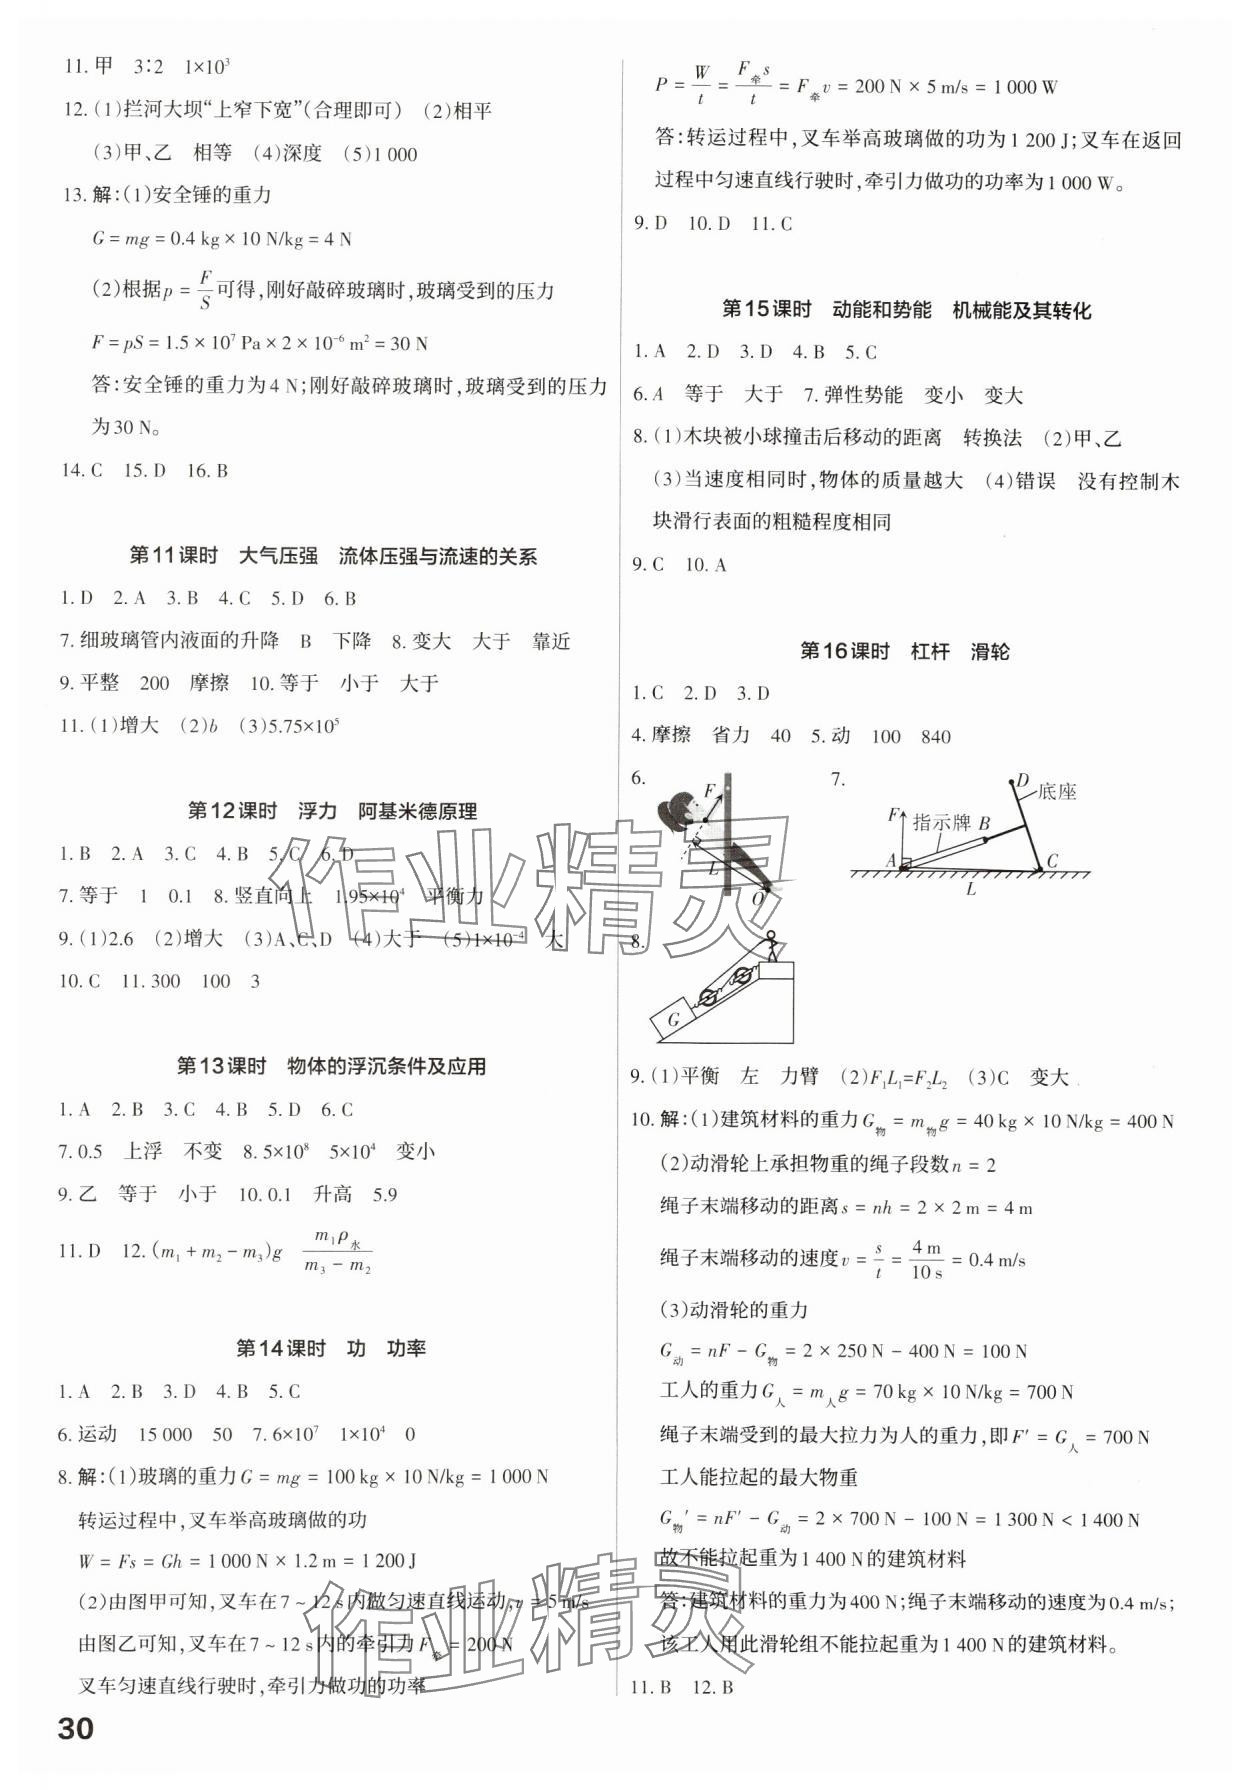 11. 甲　3∶2　1×10³
12. (1)拦河大坝“上窄下宽”(合理即可)　(2)相平
(3)甲、乙　相等　(4)深度　(5)1 000
13. 解:(1)安全锤的重力
G = mg = 0.4 kg × 10 N/kg = 4 N
(2)根据p = F/S可得,刚好敲碎玻璃时,玻璃受到的压力
F = pS = 1.5 × 10⁷ Pa × 2 × 10⁻⁶ m² = 30 N
答:安全锤的重力为4 N;刚好敲碎玻璃时,玻璃受到的压力
为30 N。
14. C　15. D　16. B
第11课时　大气压强　流体压强与流速的关系
1. D　2. A　3. B　4. C　5. D　6. B
7. 细玻璃管内液面的升降　B　下降　8. 变大　大于　靠近
9. 平整　200　摩擦　10. 等于　小于　大于
11. (1)增大　(2)b　(3)5.75×10⁵
第12课时　浮力　阿基米德原理
1. B　2. A　3. C　4. B　5. C　6. D
7. 等于　1　0.1　8. 竖直向上　1.95×10⁴　平衡力
9. (1)2.6　(2)增大　(3)A、C、D　(4)大于　(5)1×10⁻⁴　大
10. C　11. 300　100　3
第13课时　物体的浮沉条件及应用
1. A　2. B　3. C　4. B　5. D　6. C
7. 0.5　上浮　不变　8. 5×10⁸　5×10⁴　变小
9. 乙　等于　小于　10. 0.1　升高　5.9
11. D　12. (m₁ + m₂ − m₃)g　m₁ρ水/(m₃ − m₂)
第14课时　功　功率
1. A　2. B　3. D　4. B　5. C
6. 运动　15 000　50　7. 6×10⁷　1×10⁴　0
8. 解:(1)玻璃的重力G = mg = 100 kg × 10 N/kg = 1 000 N
转运过程中,叉车举高玻璃做的功
W = Fs = Gh = 1 000 N × 1.2 m = 1 200 J
(2)由图甲可知,叉车在7 ~ 12 s内做匀速直线运动,v = 5 m/s
由图乙可知,叉车在7 ~ 12 s内的牵引力F牵 = 200 N
叉车匀速直线行驶时,牵引力做功的功率
30
P = W/t = F牵s/t = F牵v = 200 N × 5 m/s = 1 000 W
答:转运过程中,叉车举高玻璃做的功为1 200 J;叉车在返回
过程中匀速直线行驶时,牵引力做功的功率为1 000 W。
9. D　10. D　11. C
第15课时　动能和势能　机械能及其转化
1. A　2. D　3. D　4. B　5. C
6. A　等于　大于　7. 弹性势能　变小　变大
8. (1)木块被小球撞击后移动的距离　转换法　(2)甲、乙
(3)当速度相同时,物体的质量越大　(4)错误　没有控制木
块滑行表面的粗糙程度相同
9. C　10. A
第16课时　杠杆　滑轮
1. C　2. D　3. D
4. 摩擦　省力　40　5. 动　100　840
6.　7.
F
L
O
D
底座
F
指示牌
B
A
C
L
8.
G
9. (1)平衡　左　力臂　(2)F₁L₁=F₂L₂　(3)C　变大
10. 解:(1)建筑材料的重力G物 = m物g = 40 kg × 10 N/kg = 400 N
(2)动滑轮上承担物重的绳子段数n = 2
绳子末端移动的距离s = nh = 2 × 2 m = 4 m
绳子末端移动的速度v = s/t = 4 m/10 s = 0.4 m/s
(3)动滑轮的重力
G动 = nF − G物 = 2 × 250 N − 400 N = 100 N
工人的重力G人 = m人g = 70 kg × 10 N/kg = 700 N
绳子末端受到的最大拉力为人的重力,即F′ = G人 = 700 N
工人能拉起的最大物重
G物′ = nF′ − G动 = 2 × 700 N − 100 N = 1 300 N < 1 400 N
故不能拉起重为1 400 N的建筑材料
答:建筑材料的重力为400 N;绳子末端移动的速度为0.4 m/s;
该工人用此滑轮组不能拉起重为1 400 N的建筑材料。
11. B　12. B
作业精灵
作业精灵